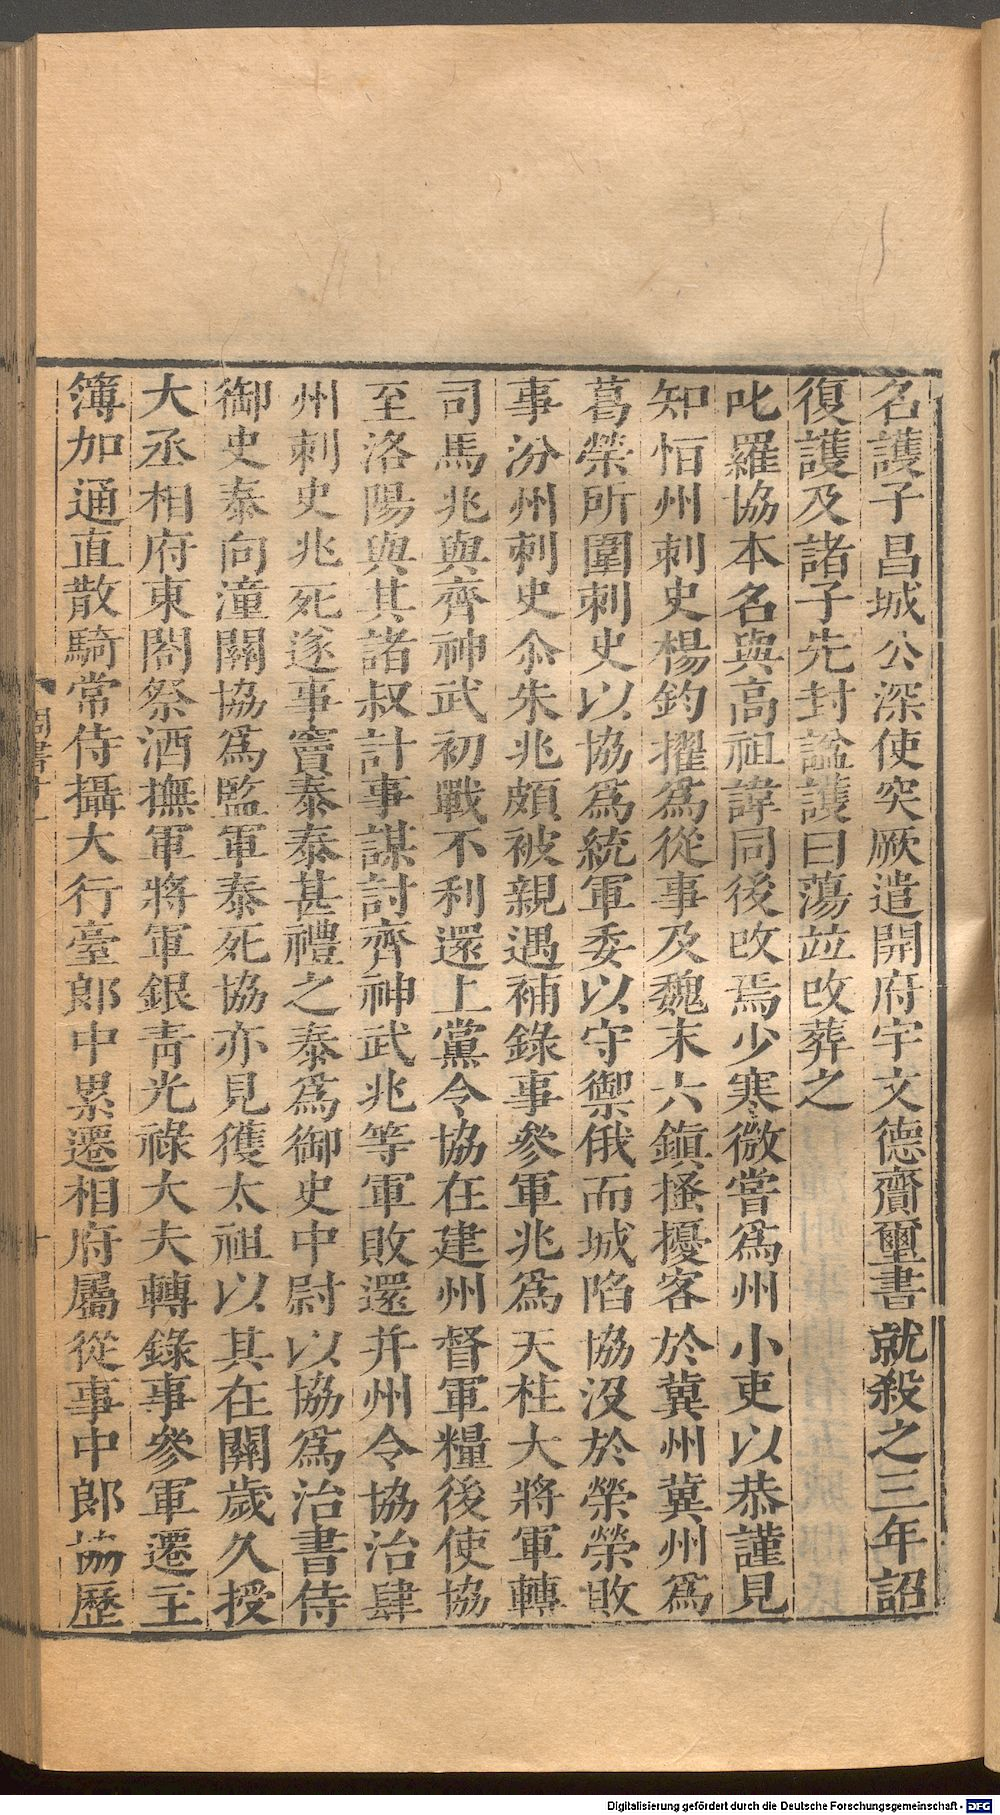 名護子昌城公深使突厥遣開府宇文德齎璽書就殺之三年詔
復護及諸子先封諡護曰蕩竝改葬之
叱羅協本名與高祖諱同後改焉少寒微嘗爲州小吏以恭謹見
知恒州刺史楊鈞擢爲從事及魏末六鎮搔擾客於冀州冀州爲
葛榮所圍刺史以協爲統軍委以守禦俄而城陷協没於榮榮敗
事汾州刺史尒朱兆頗被親遇補錄事參軍兆爲天柱大將軍轉
司馬兆與齊神武初戰不利還上黨令協在建州督軍糧後使協
至洛陽與其諸叔計事謀討齊神武兆等軍敗還并州令協治肆
州刺史兆死遂事竇泰泰甚禮之泰爲御史中尉以協爲治書侍
御史泰向潼關協爲監軍泰死協亦見獲太祖以其在關歲久授
大丞相府東閤祭酒撫軍將軍銀青光祿大夫轉錄事參軍遷主
簿加通直散騎常侍攝大行臺郎中累遷相府屬從事中郎協歷
周書十一
十
Digitalisierung gefördert durch die Deutsche Forschungsgemeinschaft - DFG